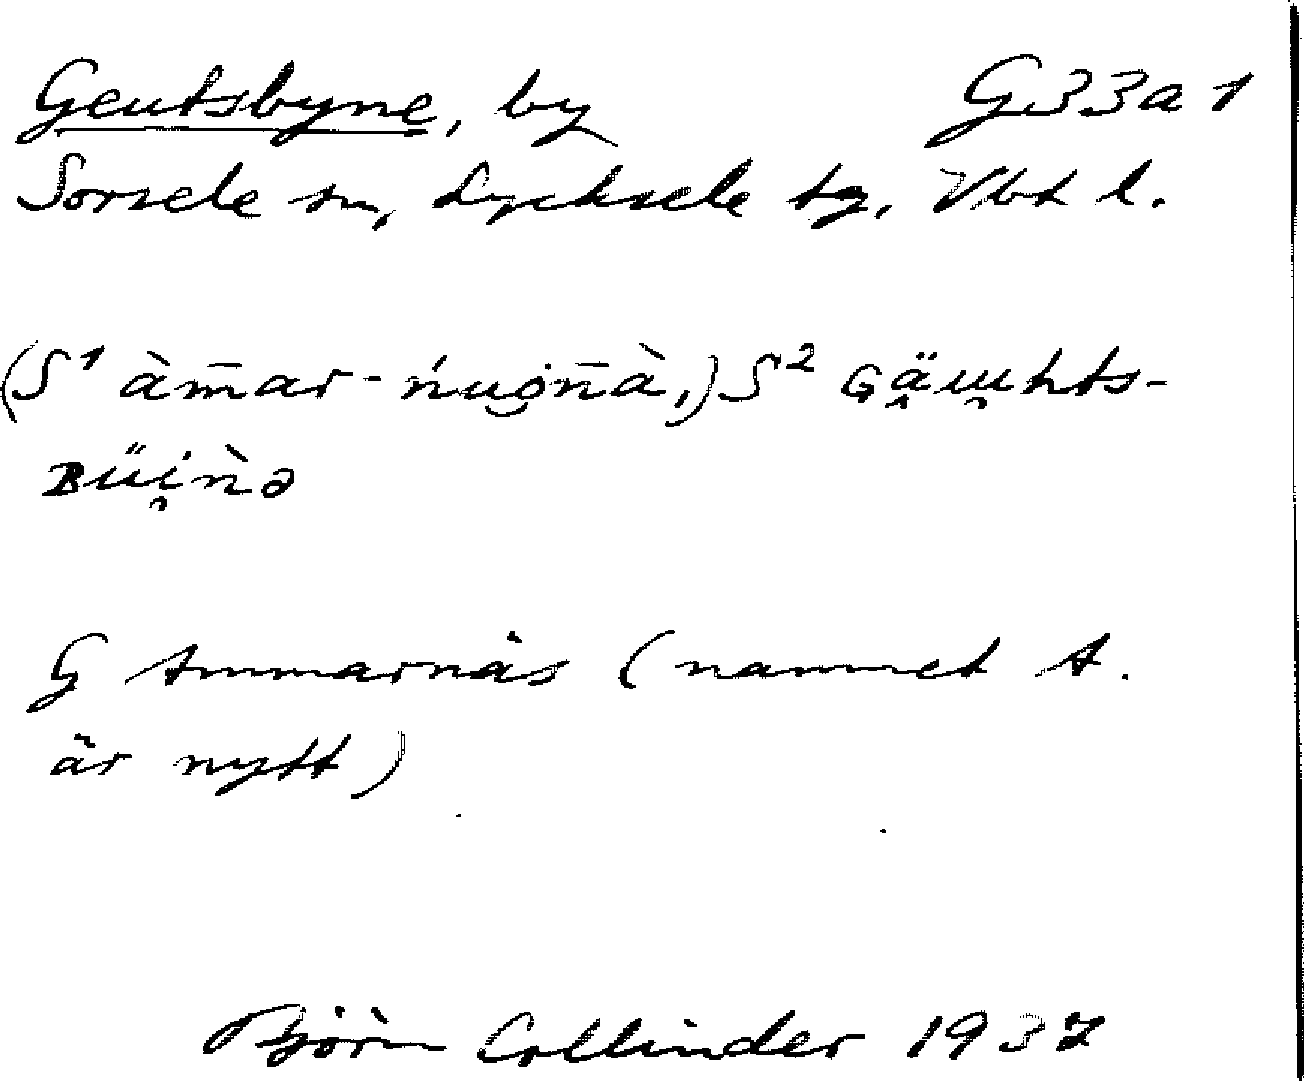 Geutsbyne, by G33a1
Sorsele sn, Lycksele tg, Vbt l.
(S¹ àm̄ar-ńuo̯n̄à,) S² ɢä̯ɯ̯hts-
ʙüi̯ǹə
G Ammarnäs (namnet A.
är nytt)
Björn Collinder 1937